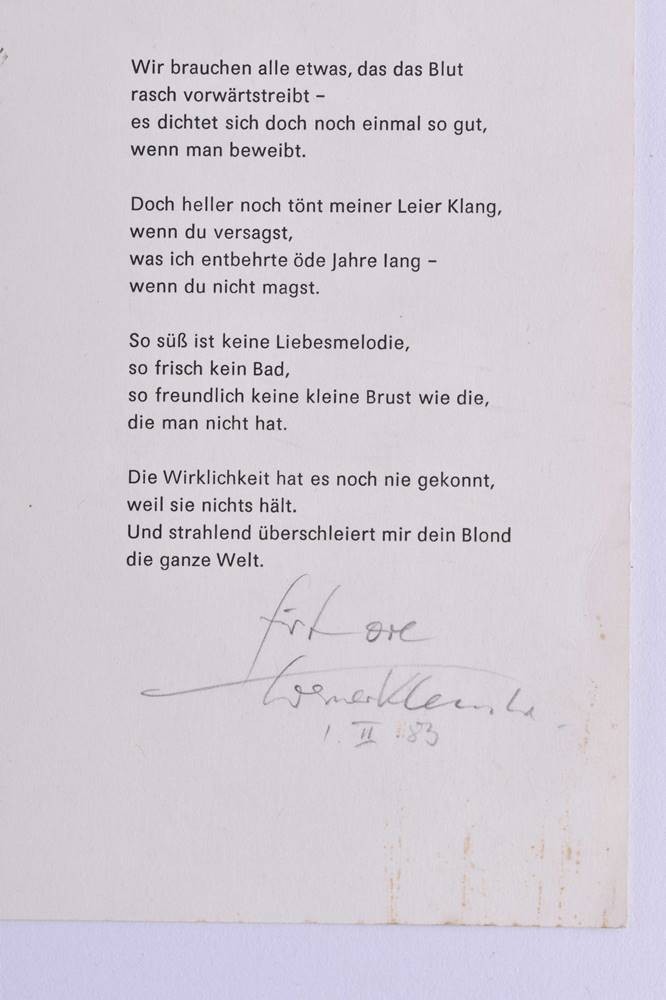 Wir brauchen alle etwas, das das Blut
rasch vorwärtstreibt –
es dichtet sich doch noch einmal so gut,
wenn man beweibt.
Doch heller noch tönt meiner Leier Klang,
wenn du versagst,
was ich entbehrte öde Jahre lang –
wenn du nicht magst.
So süß ist keine Liebesmelodie,
so frisch kein Bad,
so freundlich keine kleine Brust wie die,
die man nicht hat.
Die Wirklichkeit hat es noch nie gekonnt,
weil sie nichts hält.
Und strahlend überschleiert mir dein Blond
die ganze Welt.
für
Werner Klemke
1. II 83